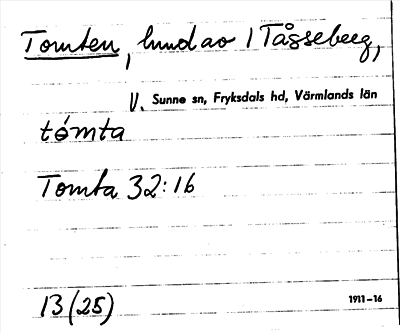 Tomten, hmd av 1 Tåsseberg,
V. Sunne sn, Fryksdals hd, Värmlands län
tómta
Tomta 32:16
13 (25)
1911-16